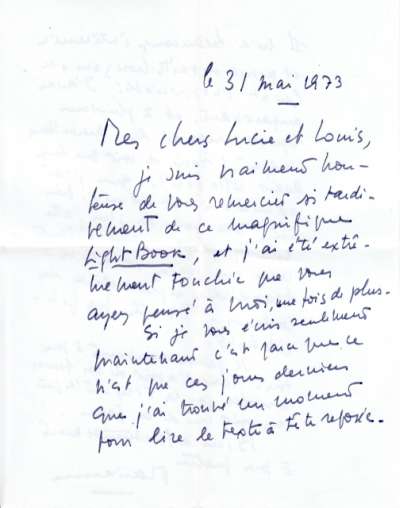 le 31 mai 1973
Mes chers Lucie et Louis,
je suis vraiment hon-
teuse de vous remercier si tardi-
vement de ce magnifique
Light Book, et j'ai été extrê-
mement touchée que vous
ayez pensé à moi, une fois de plus.
Si je vous écris seulement
maintenant c'est parce que ce
n'est que ces jours derniers
que j'ai trouvé un moment
pour lire le texte à tête reposée.